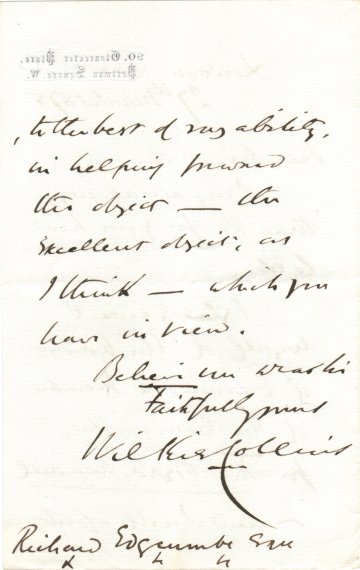 90. Gloucester Place,
Portman Square. W.
London
27th March 1875
, to the best of my ability,
in helping forward
the object — the
excellent object, as
I think — which you
have in view.
Believe me
Faithfully yours
Wilkie Collins
Richard Edgcumbe Esqre